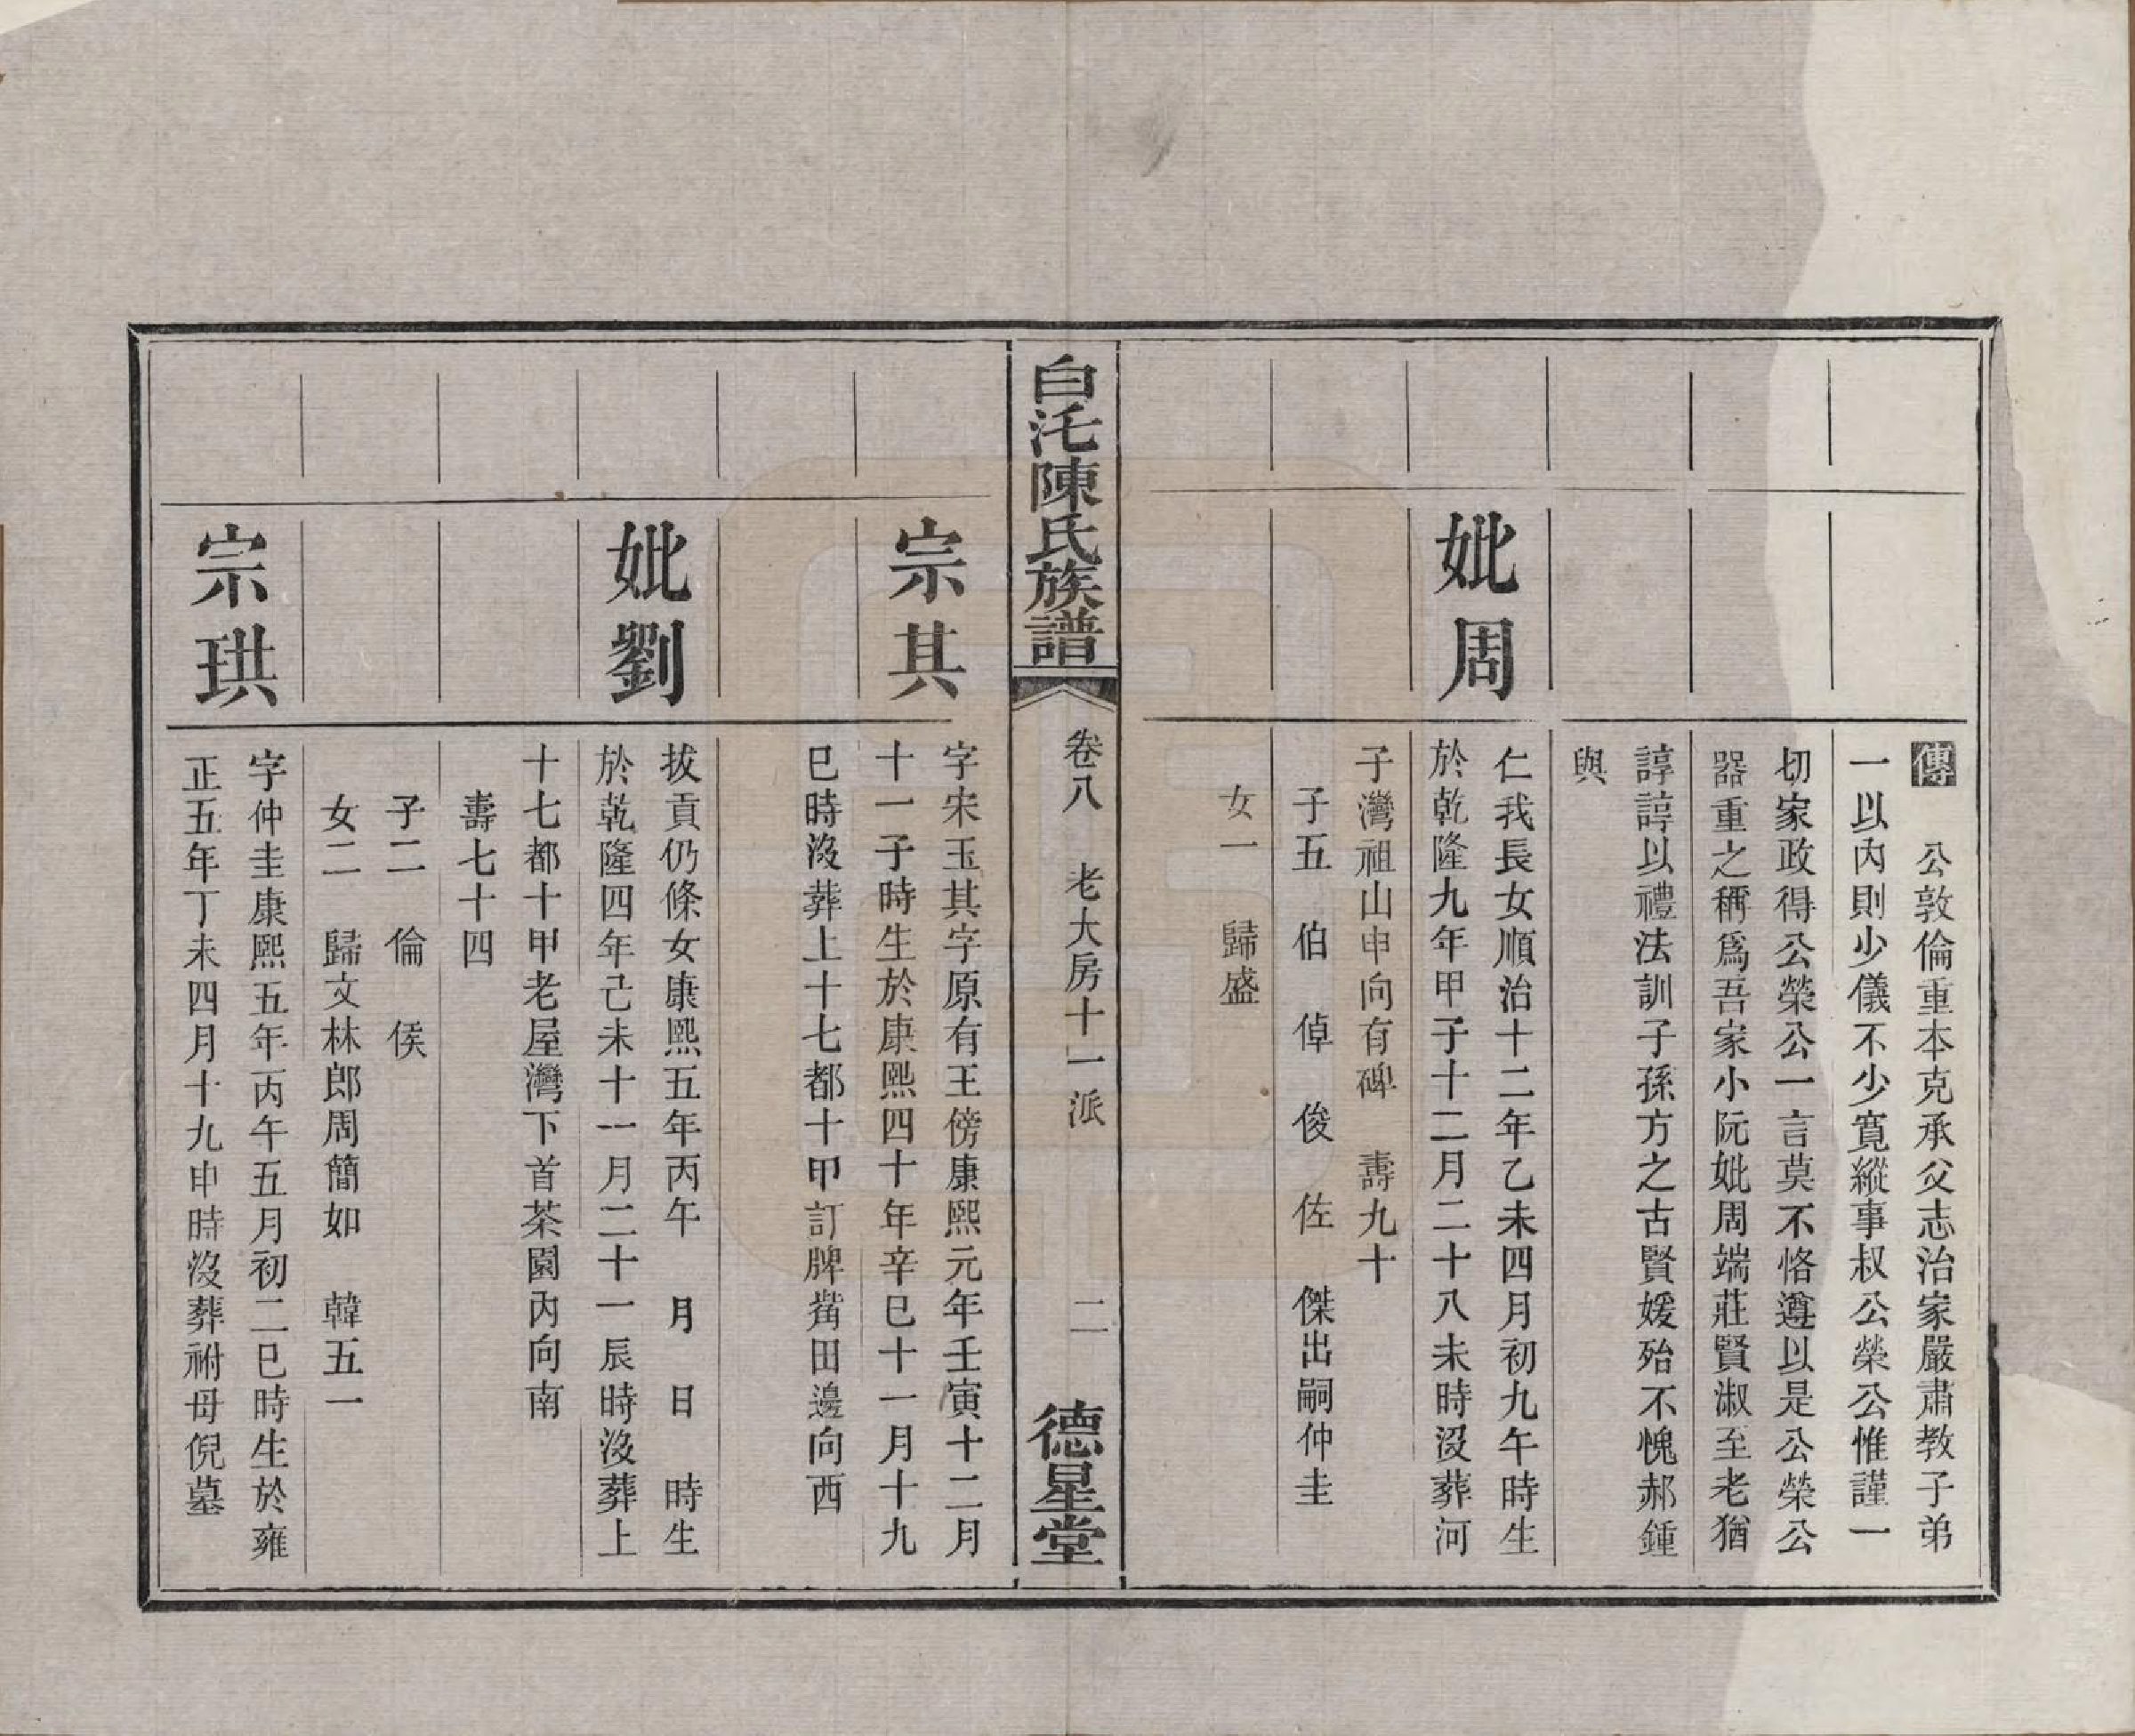 傳　公敦倫重本克承父志治家嚴肅教子弟
一以內則少儀不少寬縱事叔公榮公惟謹一
切家政得公榮公一言莫不恪遵以是公榮公
器重之稱爲吾家小阮妣周端莊賢淑至老猶
諄諄以禮法訓子孫方之古賢媛殆不愧郝鍾
與
妣周
仁我長女順治十二年乙未四月初九午時生
於乾隆九年甲子十二月二十八未時沒葬河
子灣祖山申向有碑　壽九十
子五　伯　倬　俊　佐　傑出嗣仲圭
女一　歸盛
白沱陳氏族譜　卷八　老大房十一派　二　德星堂
宗其
字宋玉其字原有王傍康熙元年壬寅十二月
十一子時生於康熙四十年辛巳十一月十九
巳時沒葬上十七都十甲訂牌觜田邊向西
妣劉
拔貢仍條女康熙五年丙午　月　日　時生
於乾隆四年己未十一月二十一辰時沒葬上
十七都十甲老屋灣下首茶園內向南
壽七十四
子二　倫　侯
女二　歸文林郎周簡如　韓五一
宗珙
字仲圭康熙五年丙午五月初二巳時生於雍
正五年丁未四月十九申時沒葬祔母倪墓